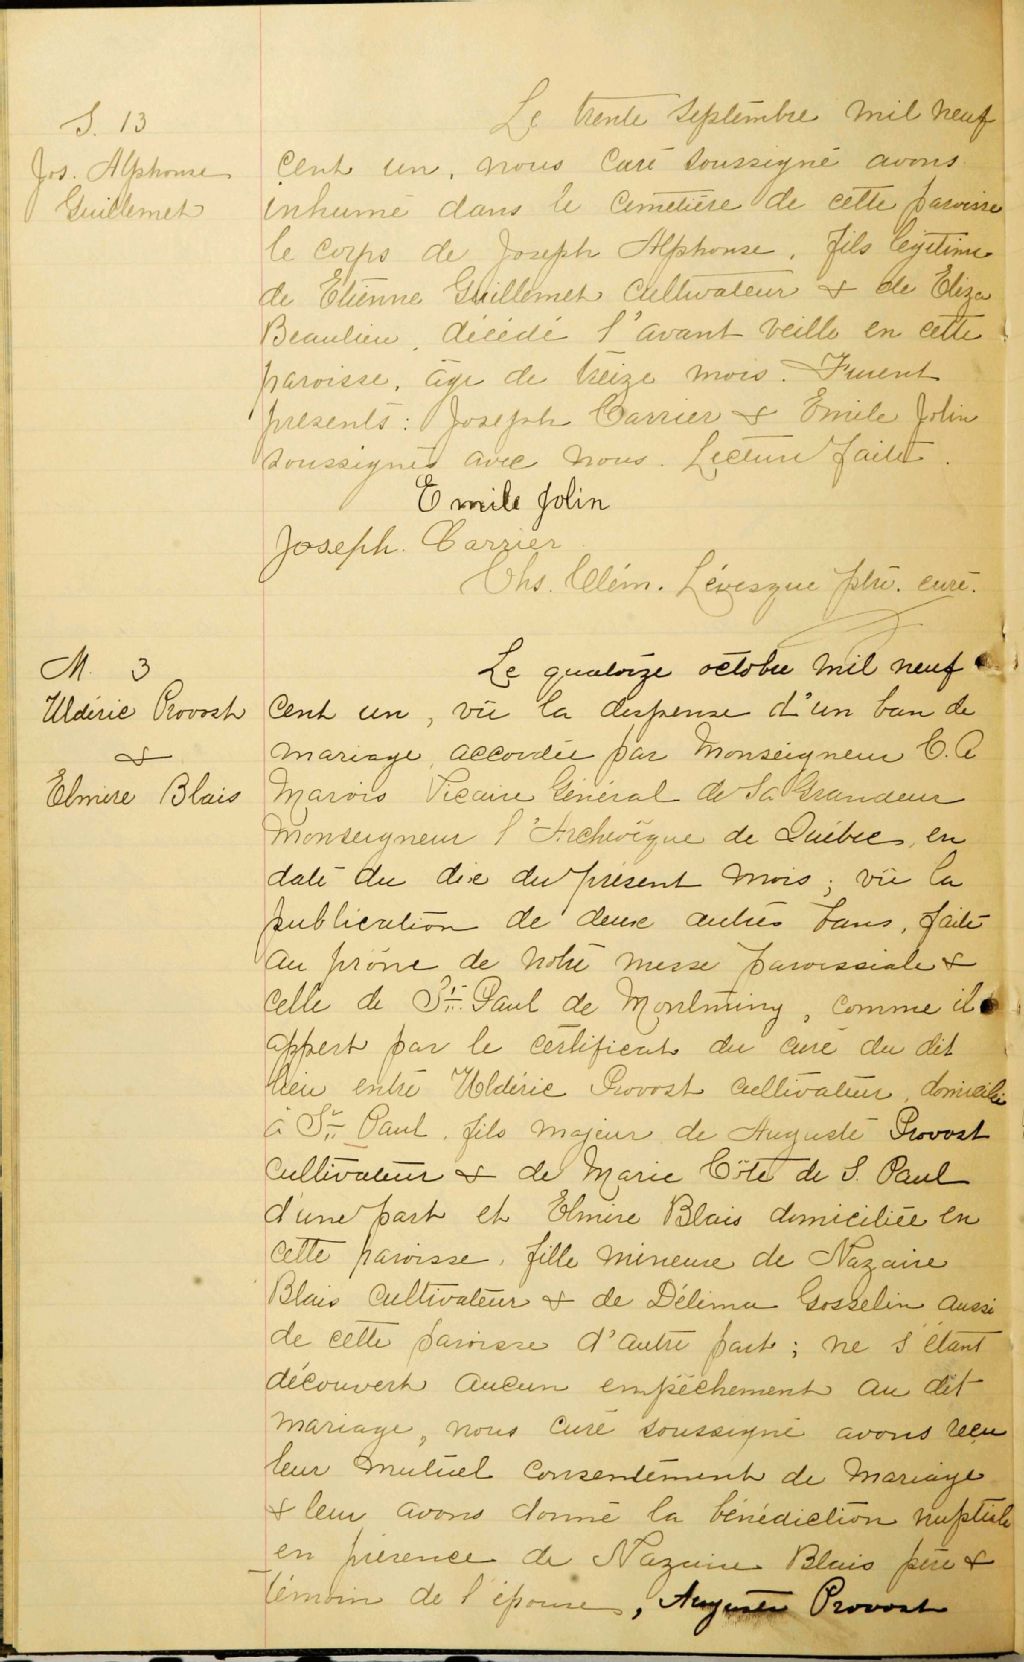 S. 13
Jos. Alphonse
Guillemet
Le trente septembre mil neuf
cent un, nous curé soussigné avons
inhumé dans le cimetière de cette paroisse
le corps de Joseph Alphonse, fils légitime
de Etienne Guillemet cultivateur & de Eliza
Beaulieu, décédé l'avant veille en cette
paroisse, âgé de treize mois. Furent
présents: Joseph Carrier & Emile Jolin
soussignés avec nous. Lecture faite.
Emile Jolin
Joseph. Carrier
Chs. Clém. Lévesque ptre. curé.
M. 3
Uldéric Provost
&
Elmire Blais
Le quatorze octobre mil neuf
cent un, vû la dispense d'un ban de
mariage accordée par Monseigneur C. A
Marois Vicaire Général de Sa Grandeur
Monseigneur l'Archevêque de Québec, en
date du dix du présent mois; vû la
publication de deux autres bans, faite
au prône de notre messe paroissiale &
celle de St. Paul de Montminy, comme il
appert par le certificat du curé du dit
lieu entre Uldéric Provost cultivateur, domicilié
à St. Paul, fils majeur de Auguste Provost
cultivateur & de Marie Côté de S. Paul
d'une part et Elmire Blais domiciliée en
cette paroisse, fille mineure de Nazaire
Blais cultivateur & de Délima Gosselin aussi
de cette paroisse d'autre part; ne s'étant
découvert aucun empêchement au dit
mariage, nous curé soussigné avons reçu
leur mutuel consentement de mariage
& leur avons donné la bénédiction nuptiale
en présence de Nazaire Blais père &
témoin de l'épouse, Auguste Provost